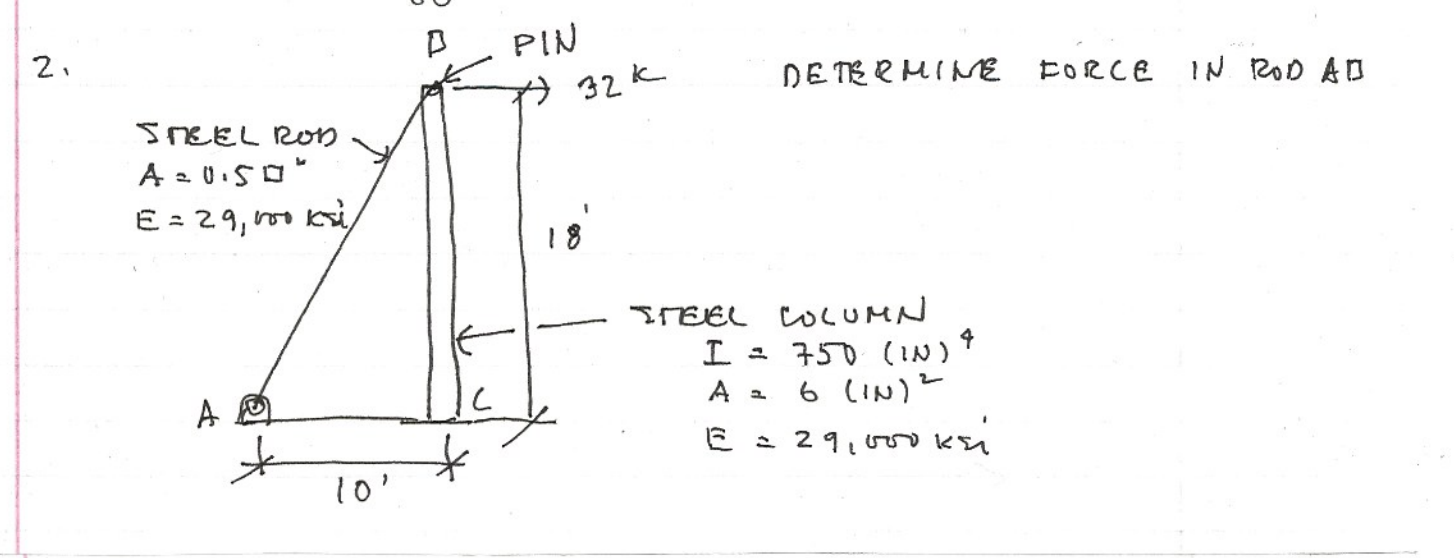 2.
B
PIN
32 K
DETERMINE FORCE IN ROD AB
STEEL ROD
A = 0.5 □"
E = 29,000 ksi
18'
STEEL COLUMN
I = 750 (IN)⁴
A = 6 (IN)²
E = 29,000 ksi
A
C
10'